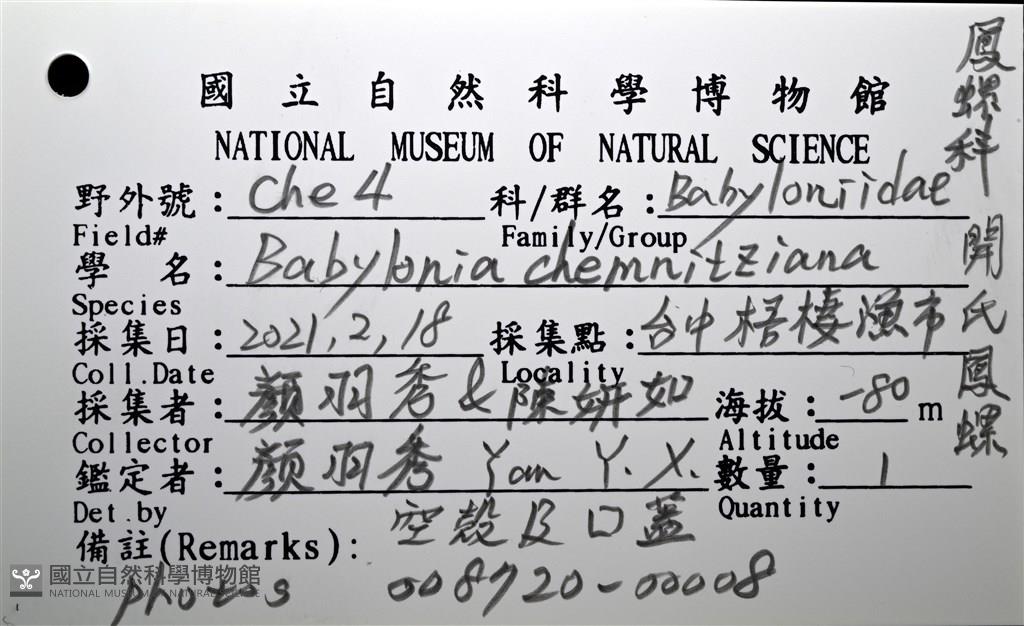 國立自然科學博物館
NATIONAL MUSEUM OF NATURAL SCIENCE
野外號：Che 4 科/群名：Babyloniidae
Field# Family/Group
學名：Babylonia chemnitziana
Species
採集日：2021,2,18 採集點：台中梧棲漁市
Coll.Date Locality
採集者：顏羽秀 & 陳妍如 海拔：-80 m
Collector Altitude
鑑定者：顏羽秀 Yan Y. X. 數量：1
Det.by Quantity
備註(Remarks): 空殼及口蓋
photos 008720-00008
鳳螺科 開氏鳳螺
國立自然科學博物館
NATIONAL MUSEUM OF NATURAL SCIENCE